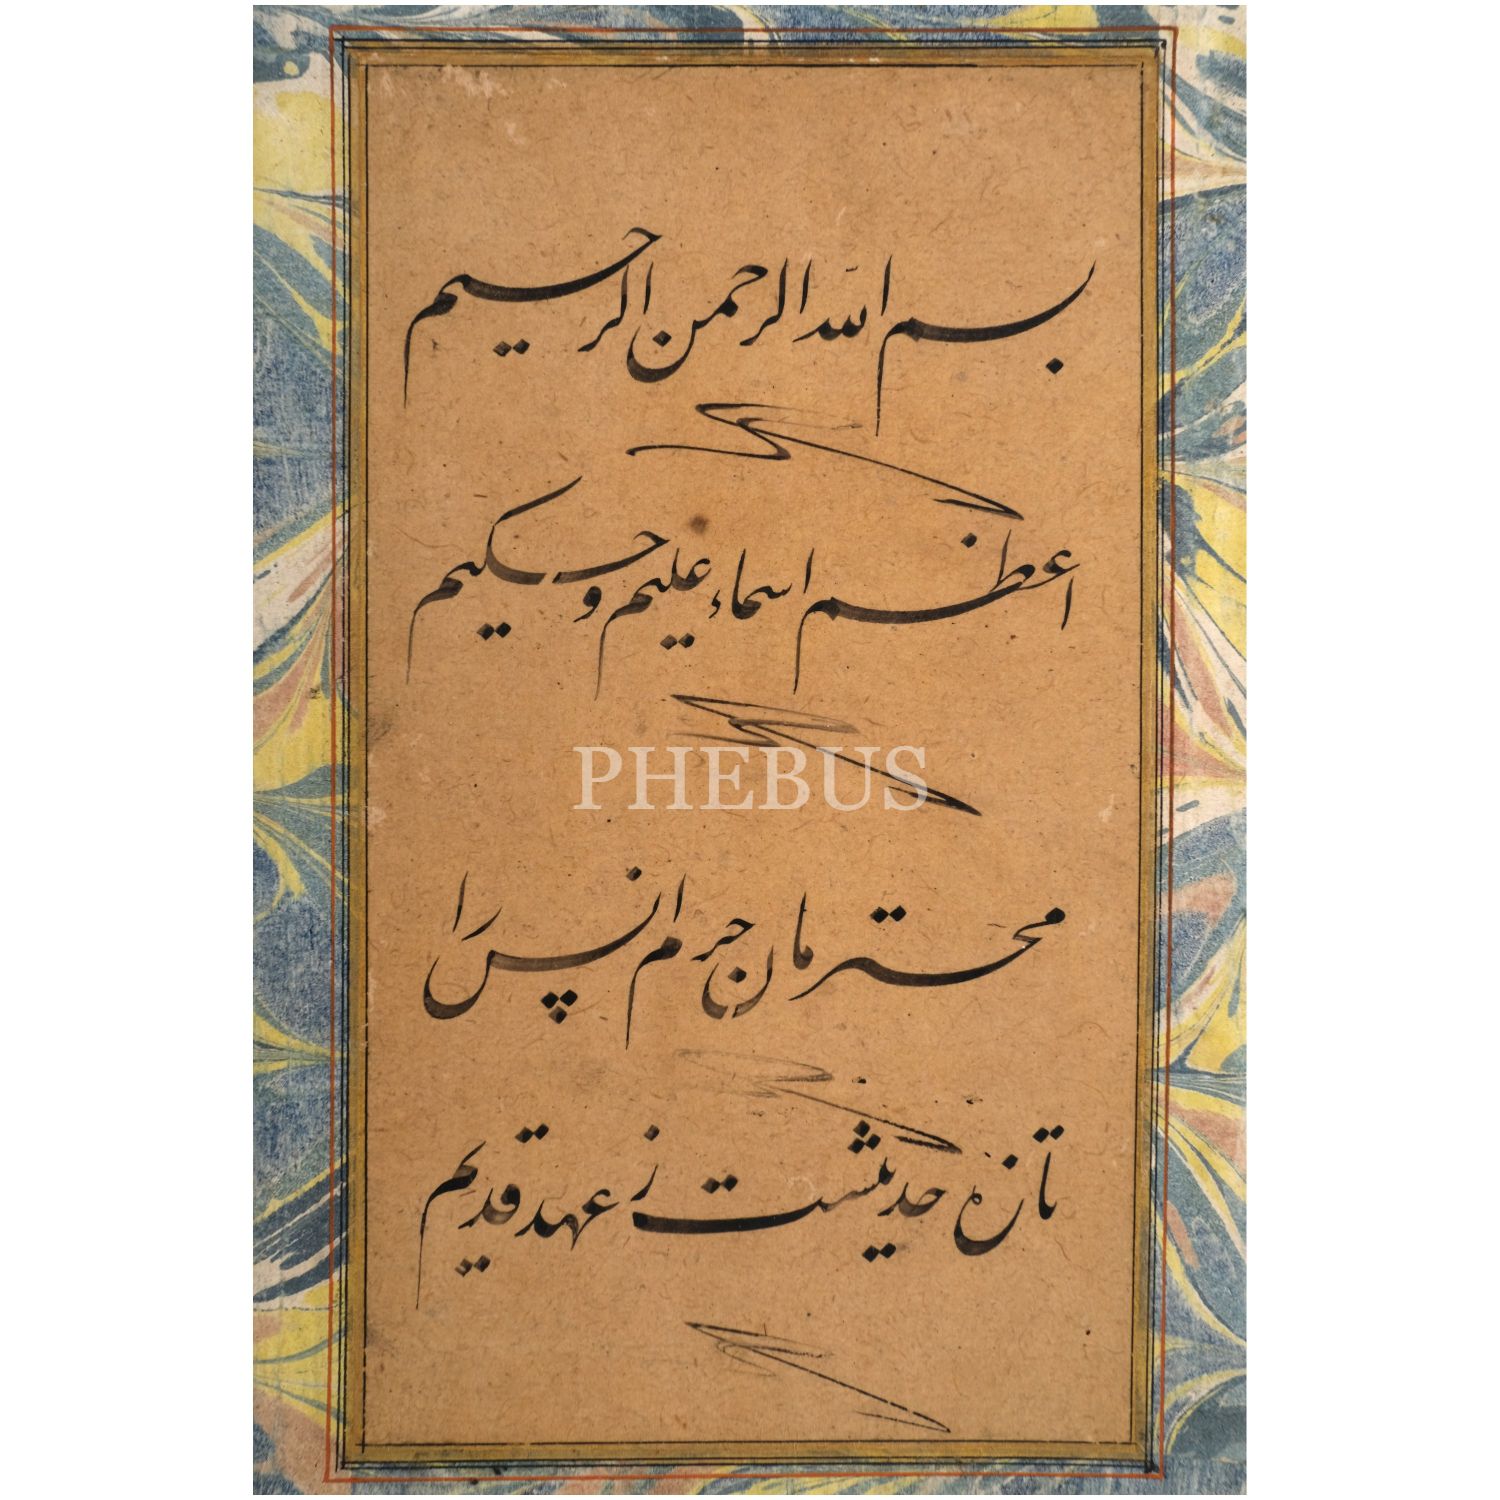 بسم الله الرحمن الرحیم
اعظم اسماء علیم و حکیم
PHEBUS
محترمان حرم انس را
تازه حدیثست ز عهد قدیم